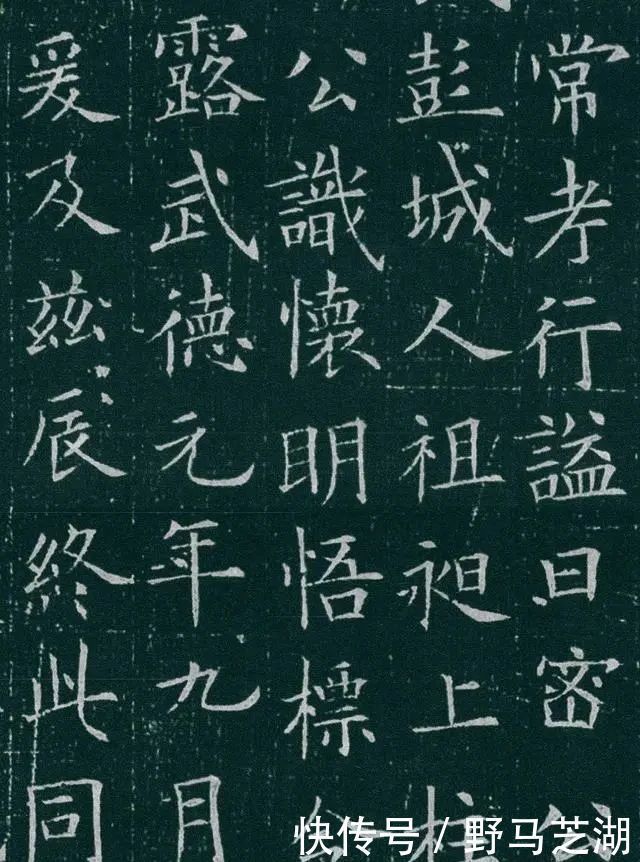 常孝行諡曰密公
彭城人祖昶上柱
公識懷明悟標
露武德元年九月
爰及茲辰終此同
快传号/野马芝湖